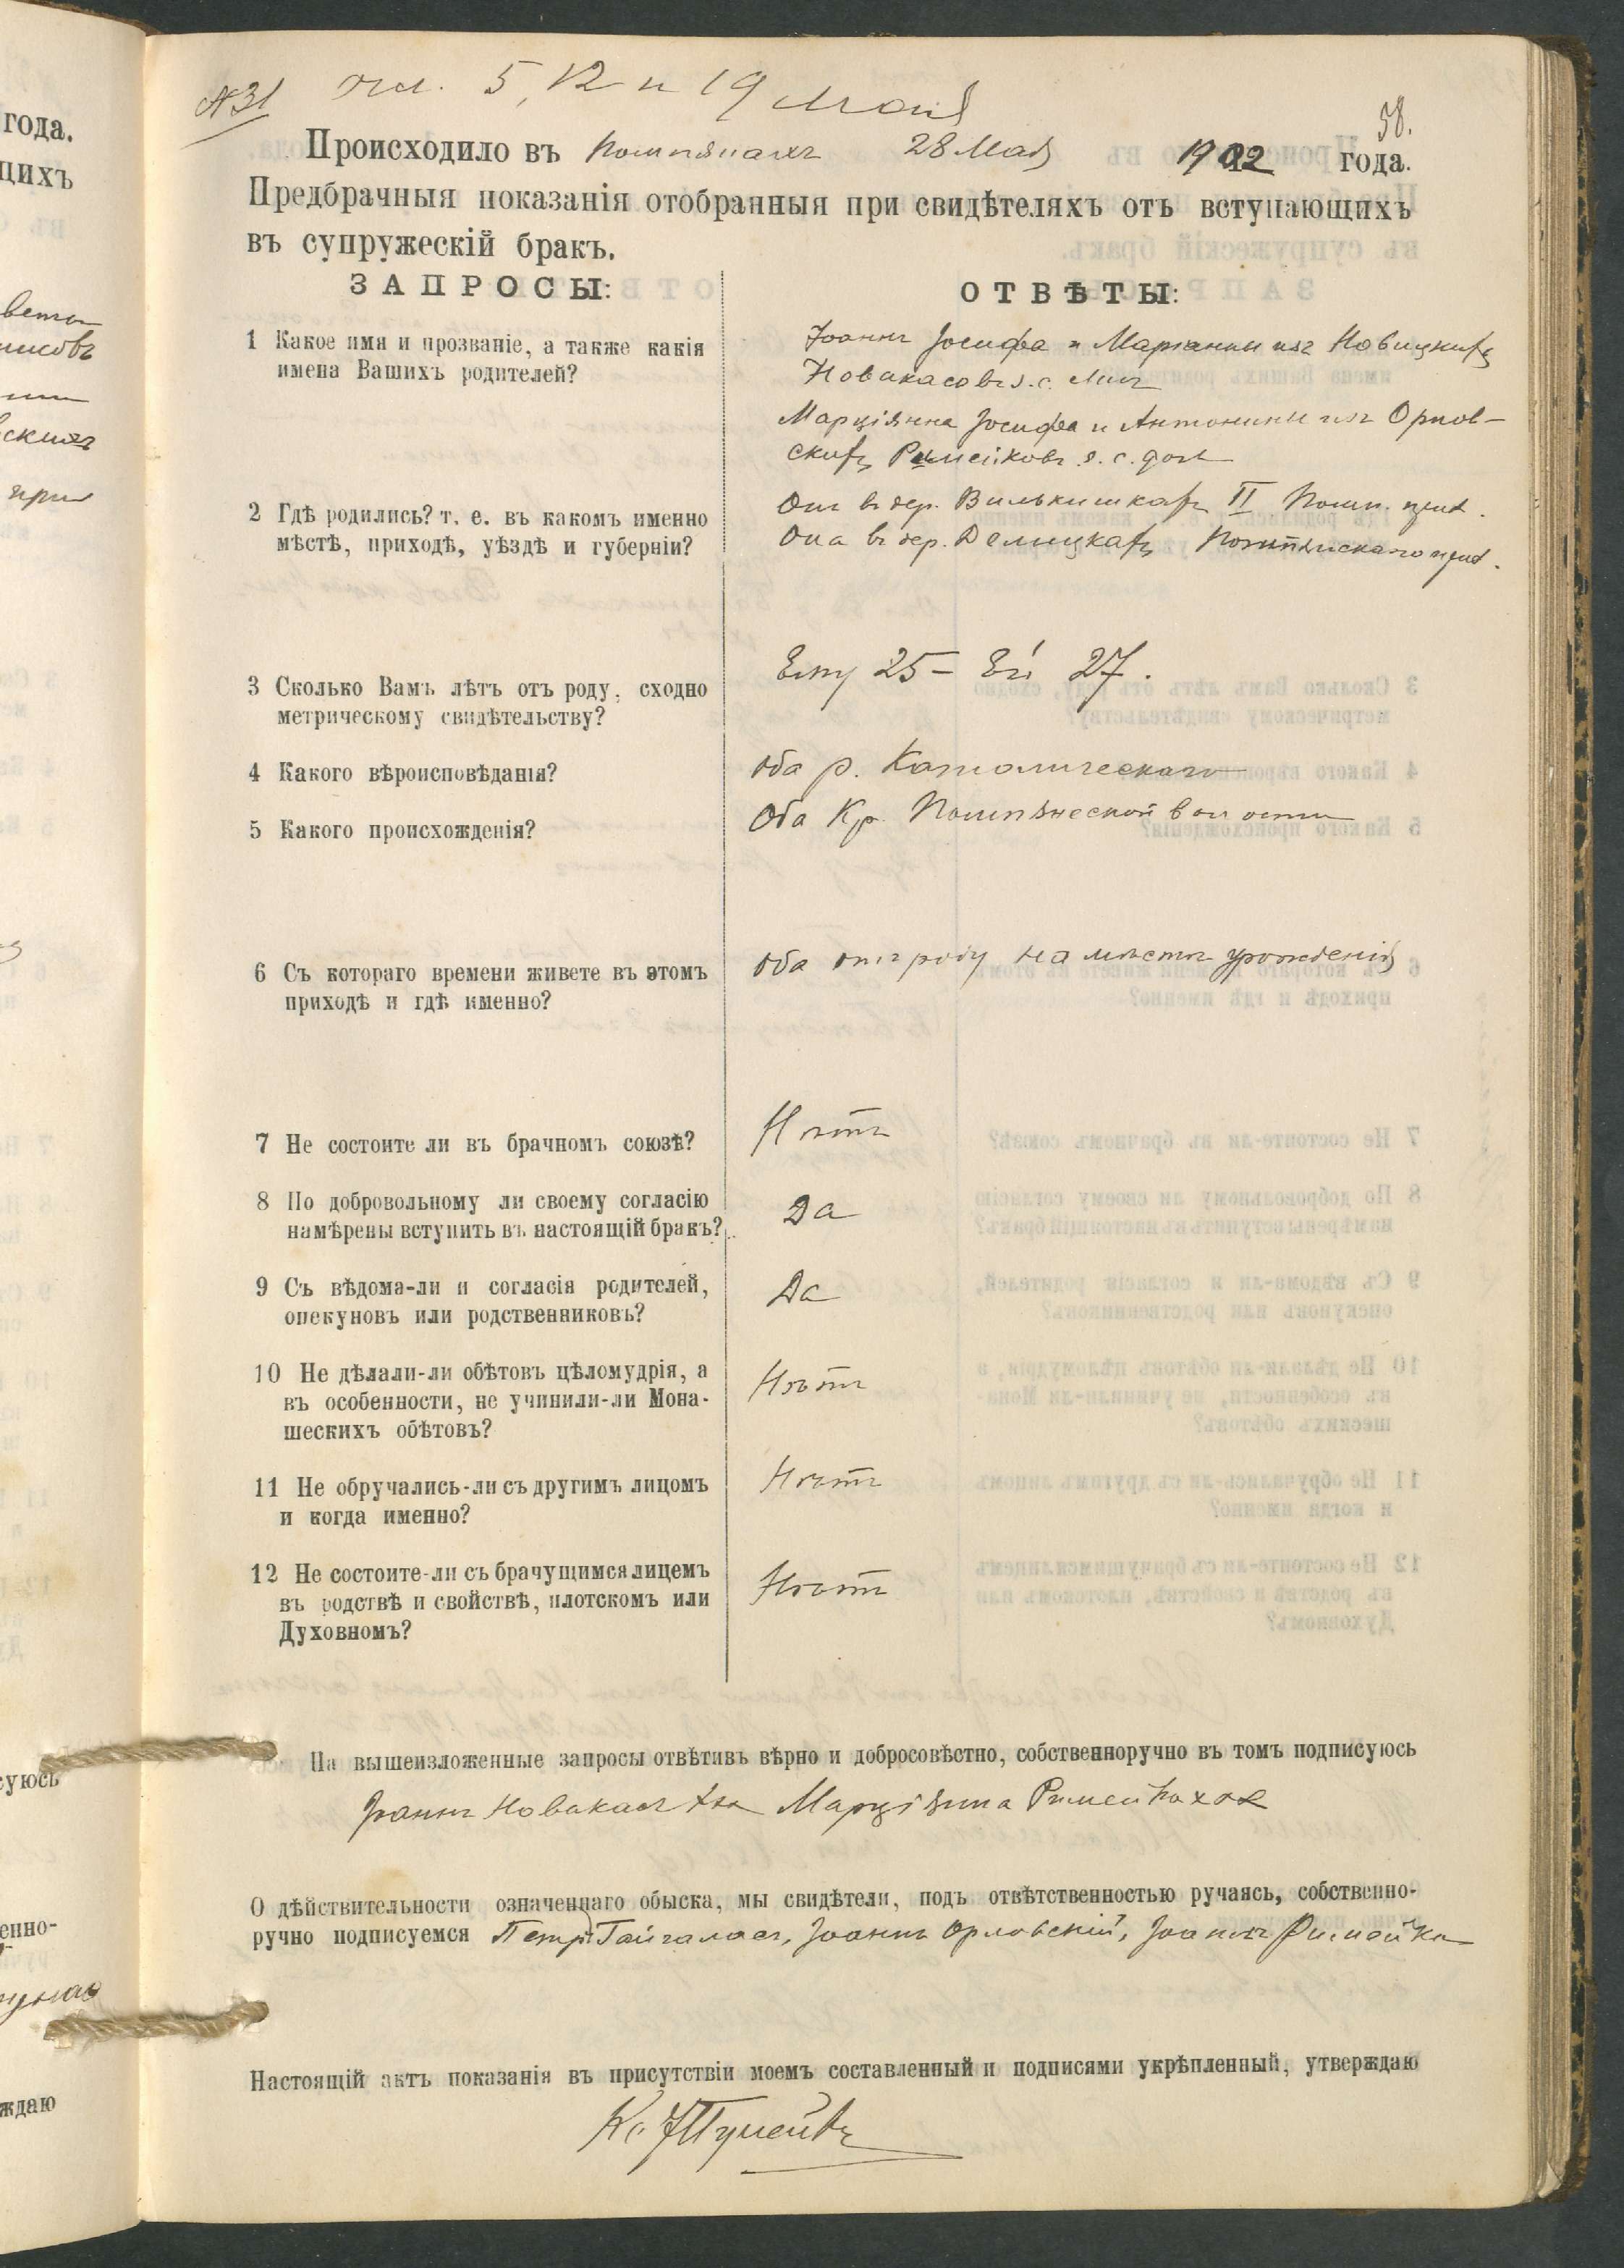 года.
щихъ
№ 31 чл. 5, 12 и 19 Мая
58.
Происходило въ Помпянахъ 28 Мая 1902 года.
Предбрачныя показанія отобранныя при свидѣтеляхъ отъ вступающихъ
въ супружескій бракъ.
ЗАПРОСЫ:
ОТВѢТЫ:
1 Какое имя и прозваніе, а также какія
имена Вашихъ родителей?
Іоаннъ Іосифа и Маріанны изъ Новицкихъ
Новакасовъ s. c. синъ
Марціянна Іосифа и Антонины изъ Орлов-
скихъ Римейковъ s. c. дочь
2 Гдѣ родились? т. е. въ какомъ именно
мѣстѣ, приходѣ, уѣздѣ и губерніи?
Онъ въ дер. Вилькишкахъ II Помп. прих.
Она въ дер. Делицкахъ Помпянскаго прих.
3 Сколько Вамъ лѣтъ отъ роду, сходно
метрическому свидѣтельству?
Ему 25 – Ей 27.
4 Какого вѣроисповѣданія?
Оба р. Католическаго
5 Какого происхожденія?
Оба Кр. Помпянской волости
6 Съ котораго времени живете въ этомъ
приходѣ и гдѣ именно?
Оба отъ роду на мѣстѣ урожденія
7 Не состоите ли въ брачномъ союзѣ?
Нѣтъ
8 По добровольному ли своему согласію
намѣрены вступить въ настоящій бракъ?
Да
9 Съ вѣдома-ли и согласія родителей,
опекуновъ или родственниковъ?
Да
10 Не дѣлали-ли обѣтовъ цѣломудрія, а
въ особенности, не учинили-ли Мона-
шескихъ обѣтовъ?
Нѣтъ
11 Не обручались-ли съ другимъ лицомъ
и когда именно?
Нѣтъ
12 Не состоите-ли съ брачущимся лицемъ
въ родствѣ и свойствѣ, плотскомъ или
Духовномъ?
Нѣтъ
На вышеизложенные запросы отвѣтивъ вѣрно и добросовѣстно, собственноручно въ томъ подписуюсь
Іоаннъ Новакасъ Марціянна Римейко
О дѣйствительности означеннаго обыска, мы свидѣтели, подъ отвѣтственностью ручаясь, собственно-
ручно подписуемся Петръ Гайгаласъ, Іоаннъ Орловскій, Іоаннъ Римейко
Настоящій актъ показанія въ присутствіи моемъ составленный и подписями укрѣпленный, утверждаю